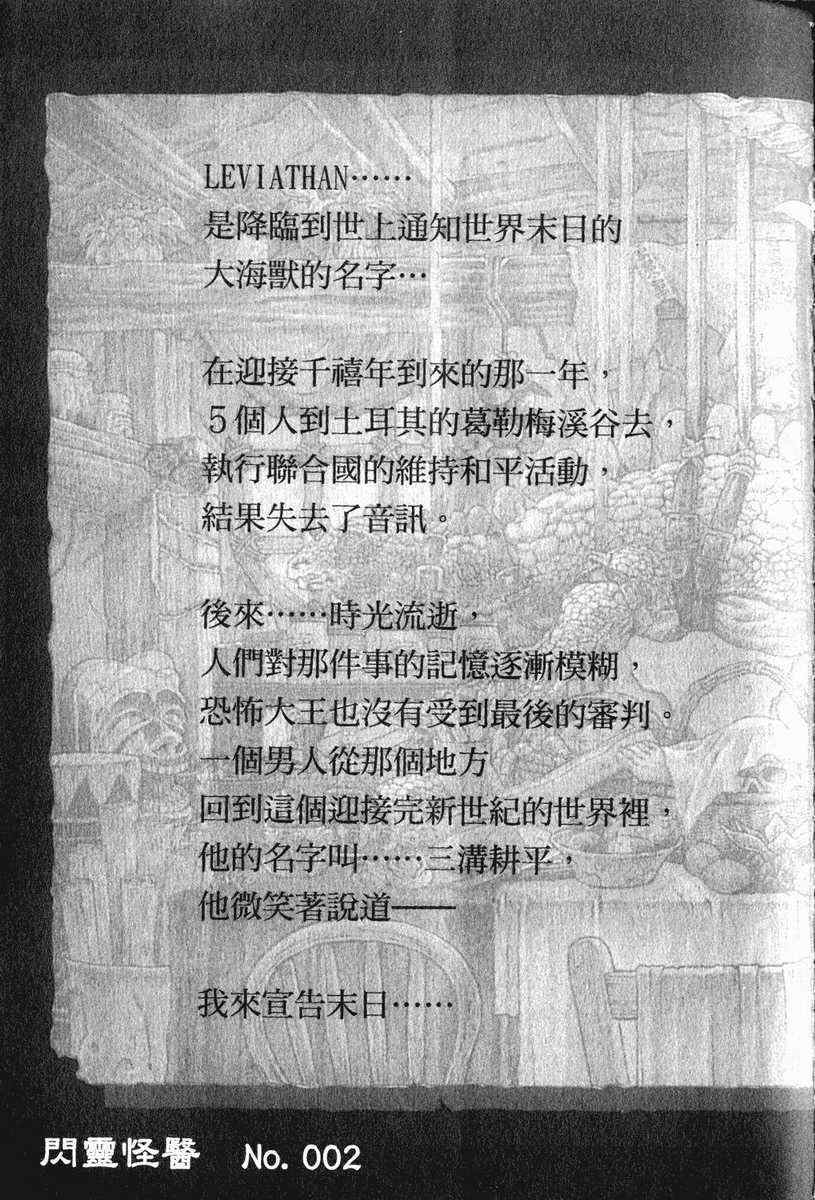 LEVIATHAN……
是降臨到世上通知世界末日的
大海獸的名字…
在迎接千禧年到來的那一年，
５個人到土耳其的葛勒梅溪谷去，
執行聯合國的維持和平活動，
結果失去了音訊。
後來……時光流逝，
人們對那件事的記憶逐漸模糊，
恐怖大王也沒有受到最後的審判。
一個男人從那個地方
回到這個迎接完新世紀的世界裡，
他的名字叫……三溝耕平，
他微笑著說道——
我來宣告末日……
閃靈怪醫 No. 002